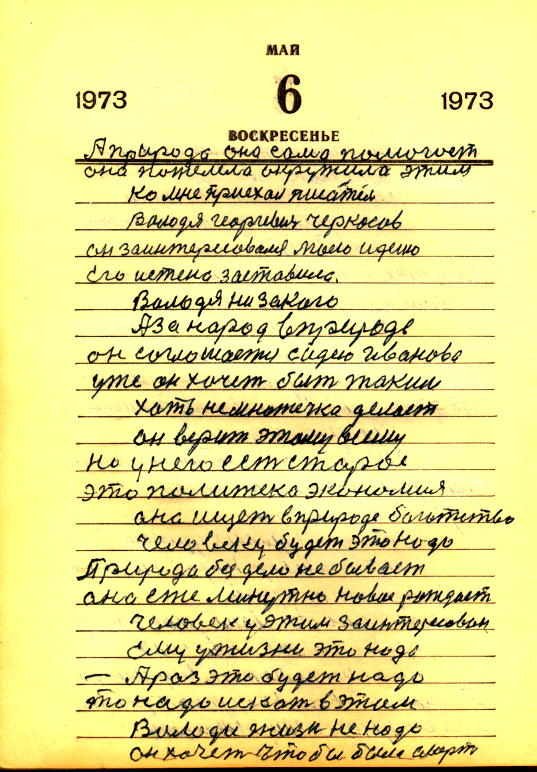 МАЙ
1973 6 1973
ВОСКРЕСЕНЬЕ
А природа она сама помогает
она пожелла окружила этим
ко мне приехал писател
Володя георгиевич черкосов
он заинтересовался моею идеию
Его истена заставила.
Володя ни за кого
А за народ в природе
он соглошается с идею Иванова
уже он хочет быт таким
хоть немножечка делает
он верит этому всему
но у него ест старое
это политека экономия
она ищет в природе богатство
человеку будет это надо
Природа без дело не бывает
она еже минутно новое рождает
Человек у этим заинтересован
Ему у жизни это надо
— А раз это будет надо
то надо искат в этом
Володи жизн не надо
он хочет чтобы была смерт